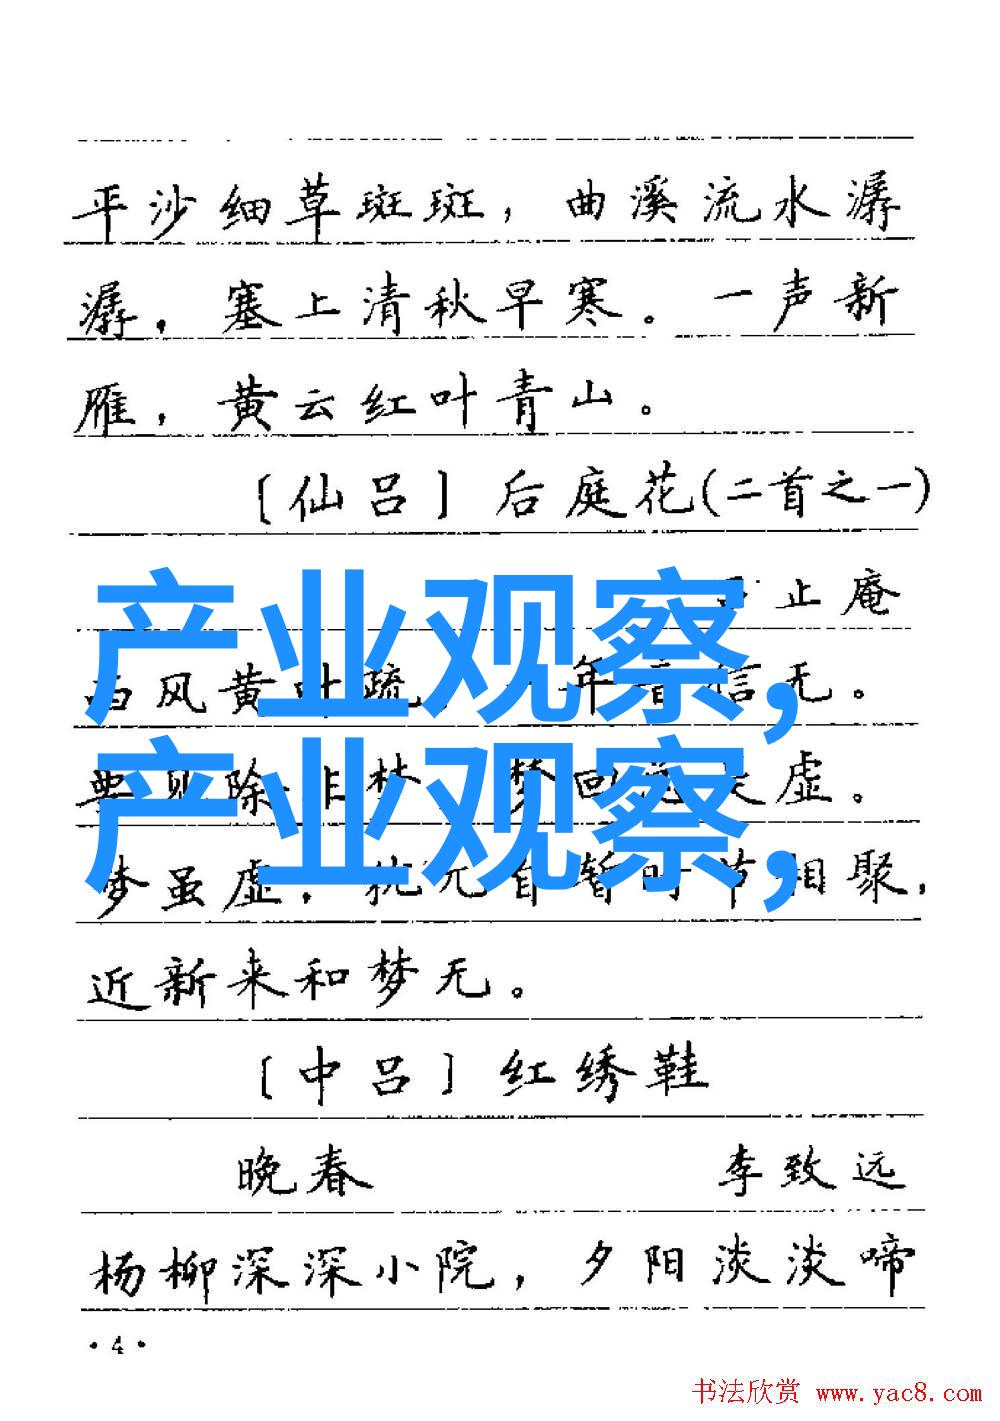 平沙细草斑斑，曲溪流水潺
潺，塞上清秋早寒。一声新
雁，黄云红叶青山。
〔仙吕〕后庭花(二首之一)
止庵
产业观察，
西风黄叶疏，年音信无。
要见除非梦，梦回总是虚。
产业观察，
梦虽虚，犹兀自暂时节相聚，
近新来和梦无。
〔中吕〕红绣鞋
晚春 李致远
杨柳深深小院，夕阳淡淡啼
·4·
书法欣赏 www.yac8.com